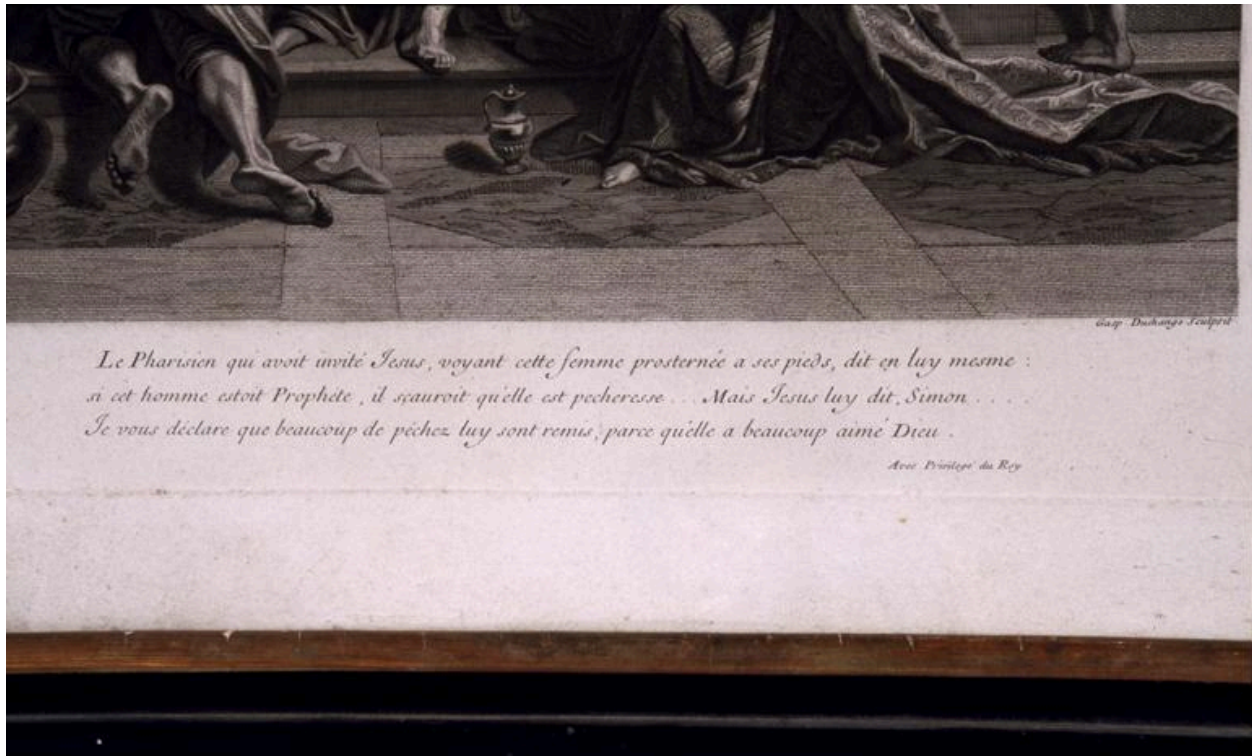 Gasp. Duchange Sculpsit
Le Pharisien qui avoit invité Jesus, voyant cette femme prosternée a ses pieds, dit en luy mesme :
si cet homme estoit Prophéte, il sçauroit qu'elle est pecheresse ... Mais Jesus luy dit, Simon ....
Je vous déclare que beaucoup de péchez luy sont remis, parce qu'elle a beaucoup aimé Dieu .
Avec Privilege du Roy